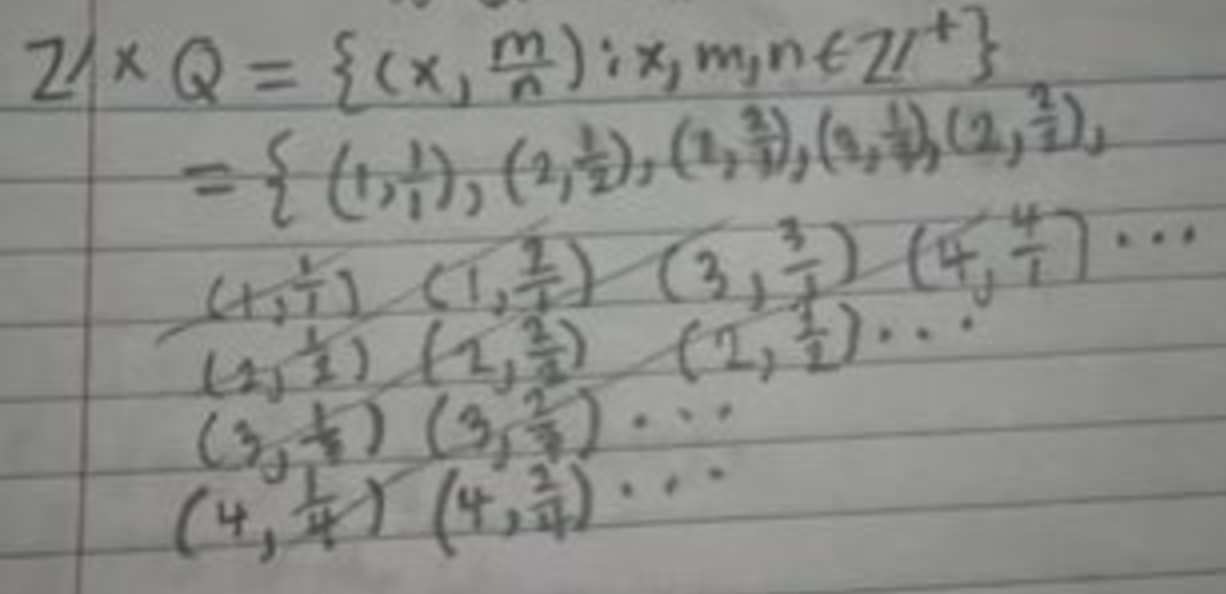 ℤ × Q = {(x, m/n) : x, m, n ∈ ℤ⁺}
= { (1, 1/1), (2, 1/2), (2, 2/1), (3, 1/3), (2, 2/2),
(1, 1/1) (1, 2/1) (3, 3/1) (4, 4/1) ...
(2, 1/2) (2, 2/2) (2, 3/2) ...
(3, 1/3) (3, 2/3) ...
(4, 1/4) (4, 2/4) ...